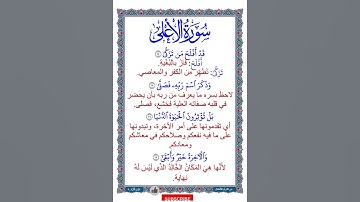 سُورَةُ الْأَعْلَى
قَدْ أَفْلَحَ مَن تَزَكَّىٰ
أَفْلَحَ: فَازَ بِالْبُغْيَةِ.
تَزَكَّىٰ: تَطَهَّرَ مِنَ الْكُفْرِ وَالْمَعَاصِي.
وَذَكَرَ اسْمَ رَبِّهِ فَصَلَّىٰ
لاحظ بسره ما يعرف من ربه بأن يحضر
في قلبه صفاته العلية فخشع، فصلى.
بَلْ تُؤْثِرُونَ الْحَيَوٰةَ الدُّنْيَا
أي تقدمونها على أمر الآخرة، وتبدونها
على ما فيه نفعكم وصلاحكم في معاشكم
ومعادكم.
وَالْآخِرَةُ خَيْرٌ وَأَبْقَىٰ
لأنها هِيَ المَكَانُ الخَالِدُ الَّذِي لَيْسَ لَهُ
نِهَايَة.
SUBSCRIBE